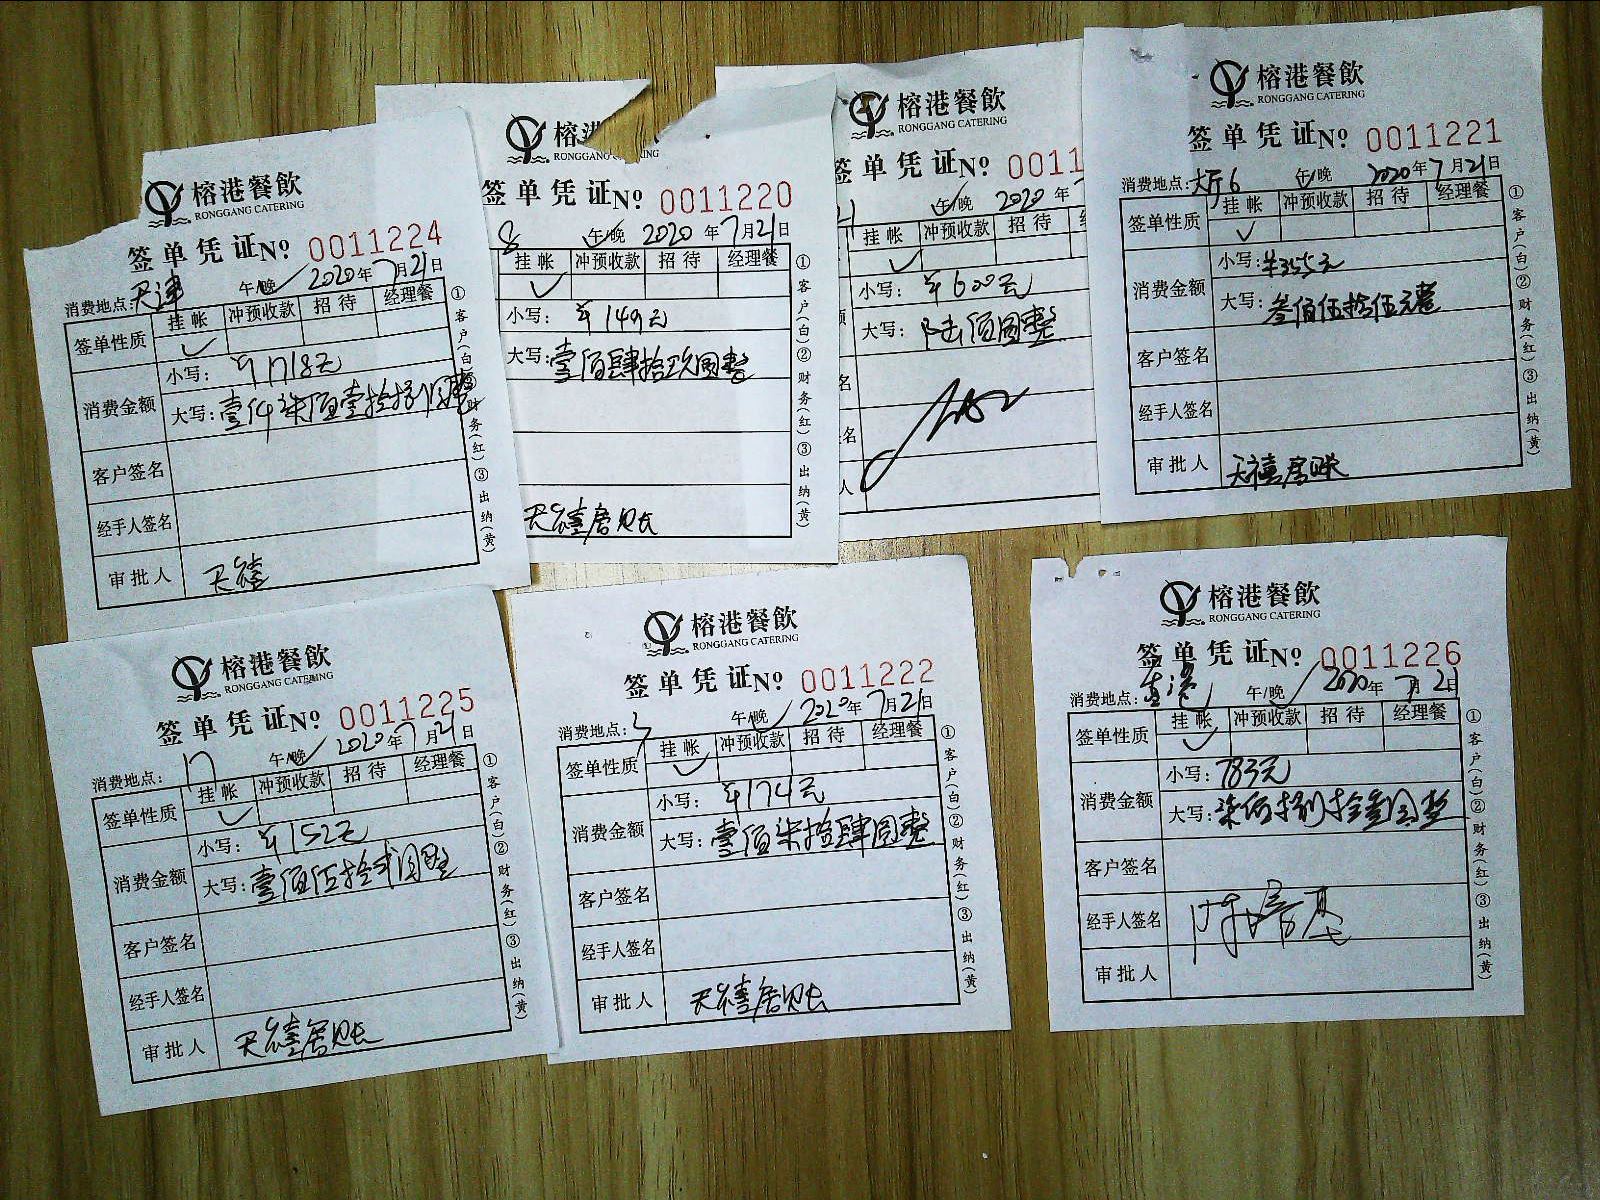 榕港餐飲
RONGGANG CATERING
签单凭证No 0011224
消费地点:天津 午/晚 2020年7月21日
签单性质 挂帐 冲预收款 招待 经理餐
消费金额
小写: ¥1718元
大写:壹仟柒佰壹拾捌圆整
客户签名
经手人签名
审批人 天禧
①客户(白)②财务(红)③出纳(黄)
榕港
RONGGANG
签单凭证No 0011220
8 午/晚 2020年7月21日
挂帐 冲预收款 招待 经理餐
小写: ¥149元
大写:壹佰肆拾玖圆整
天禧唐
①客户(白)②财务(红)③出纳(黄)
榕港餐飲
RONGGANG CATERING
签单凭证No 0011
午/晚 2020年
挂帐 冲预收款 招待
小写: ¥600元
大写:陆佰圆整
榕港餐飲
RONGGANG CATERING
签单凭证No 0011221
消费地点:大厅6 午/晚 2020年7月21日
签单性质 挂帐 冲预收款 招待 经理餐
消费金额
小写: ¥355元
大写:叁佰伍拾伍元整
客户签名
经手人签名
审批人 天禧唐
①客户(白)②财务(红)③出纳(黄)
榕港餐飲
RONGGANG CATERING
签单凭证No 0011225
消费地点: 17 午/晚 2020年7月21日
签单性质 挂帐 冲预收款 招待 经理餐
消费金额
小写: ¥152元
大写:壹佰伍拾贰圆整
客户签名
经手人签名
审批人 天禧唐
①客户(白)②财务(红)③出纳(黄)
榕港餐飲
RONGGANG CATERING
签单凭证No 0011222
消费地点: 午/晚 2020年7月21日
签单性质 挂帐 冲预收款 招待 经理餐
消费金额
小写: ¥174元
大写:壹佰柒拾肆圆整
客户签名
经手人签名
审批人 天禧唐
①客户(白)②财务(红)③出纳(黄)
榕港餐飲
RONGGANG CATERING
签单凭证No 0011226
消费地点:香港 午/晚 2020年7月21日
签单性质 挂帐 冲预收款 招待 经理餐
消费金额
小写: 783元
大写:柒佰捌拾叁圆整
客户签名
经手人签名
审批人
①客户(白)②财务(红)③出纳(黄)